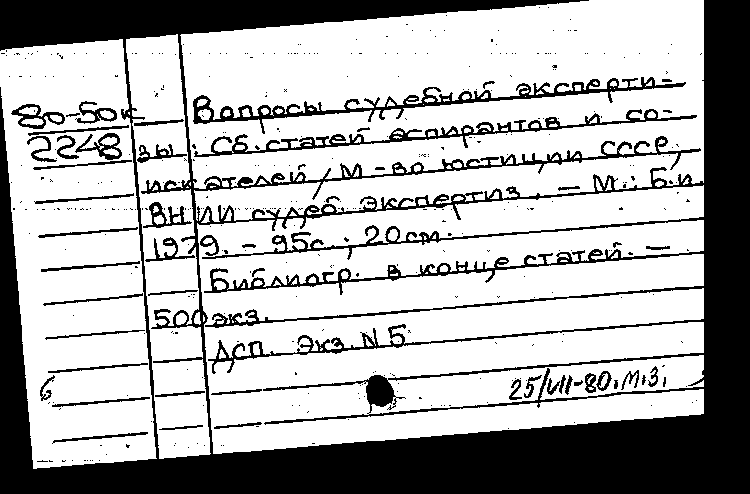 80-50к
2248
Вопросы судебной эксперти-
зы: Сб. статей аспирантов и со-
искателей / М-во юстиции СССР,
ВНИИ судеб. экспертиз. - М.: Б.и.
1979. - 95с.; 20см.
Библиогр. в конце статей. -
500 экз.
ДСП. Экз. N 5
6
25/VII-80. М.З.